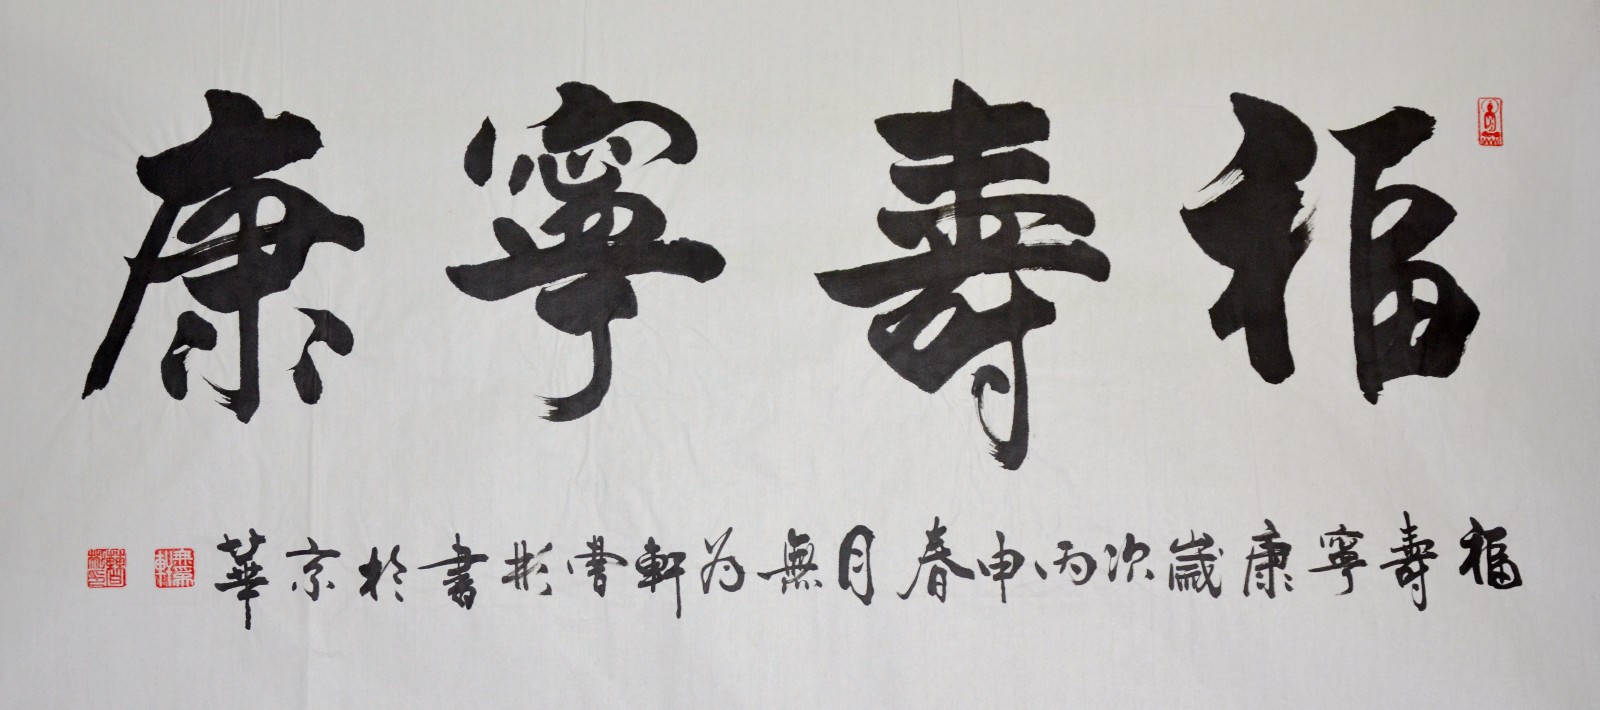 福壽寧康
福壽寧康歲次丙申春月無為軒曹彬書於京華
無為軒